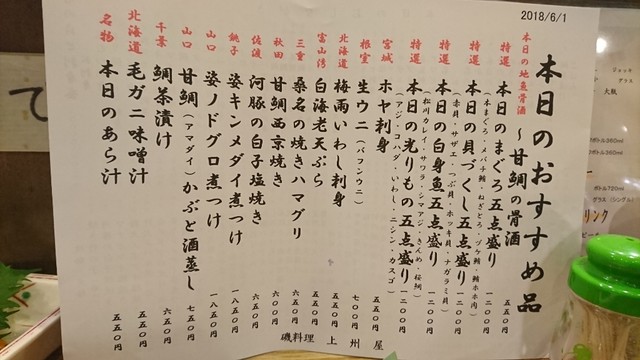 2018/6/1
本日のおすすめ品
本日の地魚骨酒 ~甘鯛の骨酒 五五〇円
特選 本日のまぐろ五点盛り 一二〇〇円
(本まぐろ・メバチ鮪・ねぎとろ・づケ鮪・鮪ホホ肉)
特選 本日の貝づくし五点盛り 一二〇〇円
(赤貝・サザエ・つぶ貝・ホッキ貝・ナガラミ貝)
特選 本日の白身魚五点盛り 一二〇〇円
(松川カレイ・サワラ・シマアジ・きんめ・桜鯛)
特選 本日の光りもの五点盛り 一二〇〇円
(アジ・コハダ・いわし・ニシン・カスゴ)
宮城 ホヤ刺身 五五〇円
根室 生ウニ(バフンウニ) 七〇〇円
北海道 梅雨いわし刺身 五五〇円
富山湾 白海老天ぷら 五五〇円
三重 桑名の焼きハマグリ 六五〇円
秋田 甘鯛西京焼き 六〇〇円
佐渡 河豚の白子塩焼き 六五〇円
銚子 姿キンメダイ煮つけ 一八五〇円
山口 姿ノドグロ煮つけ 一八五〇円
山口 甘鯛(アマダイ)かぶと酒蒸し 七五〇円
千葉 鯛茶漬け 六五〇円
北海道 毛ガニ味噌汁 五五〇円
名物 本日のあら汁 五五〇円
磯料理 上州屋
て
ジョッキ
グラス
ボトル360ml
ボトル360ml
ボトル720ml
グラス(シングル)
リンク